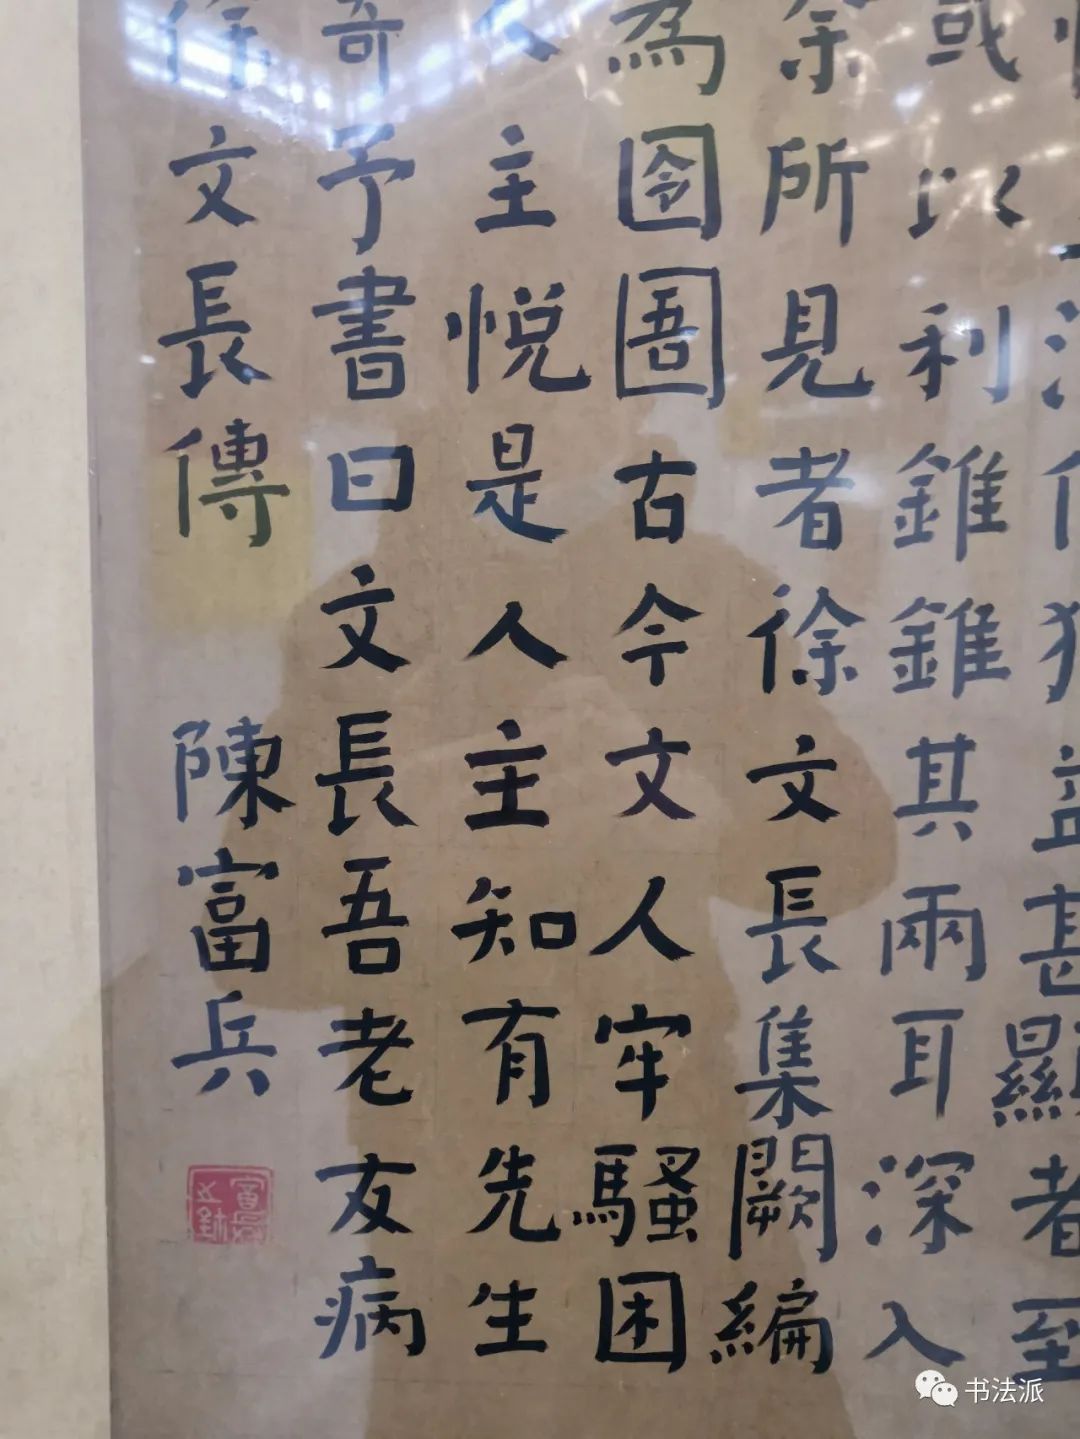 益甚顯者至
或以利錐錐其兩耳深入
余所見者徐文長集闕編
為囹圄古今文人牢騷困
人主悅是人主知有先生
奇予書曰文長吾老友病
徐文長傳 陳富兵
书法派